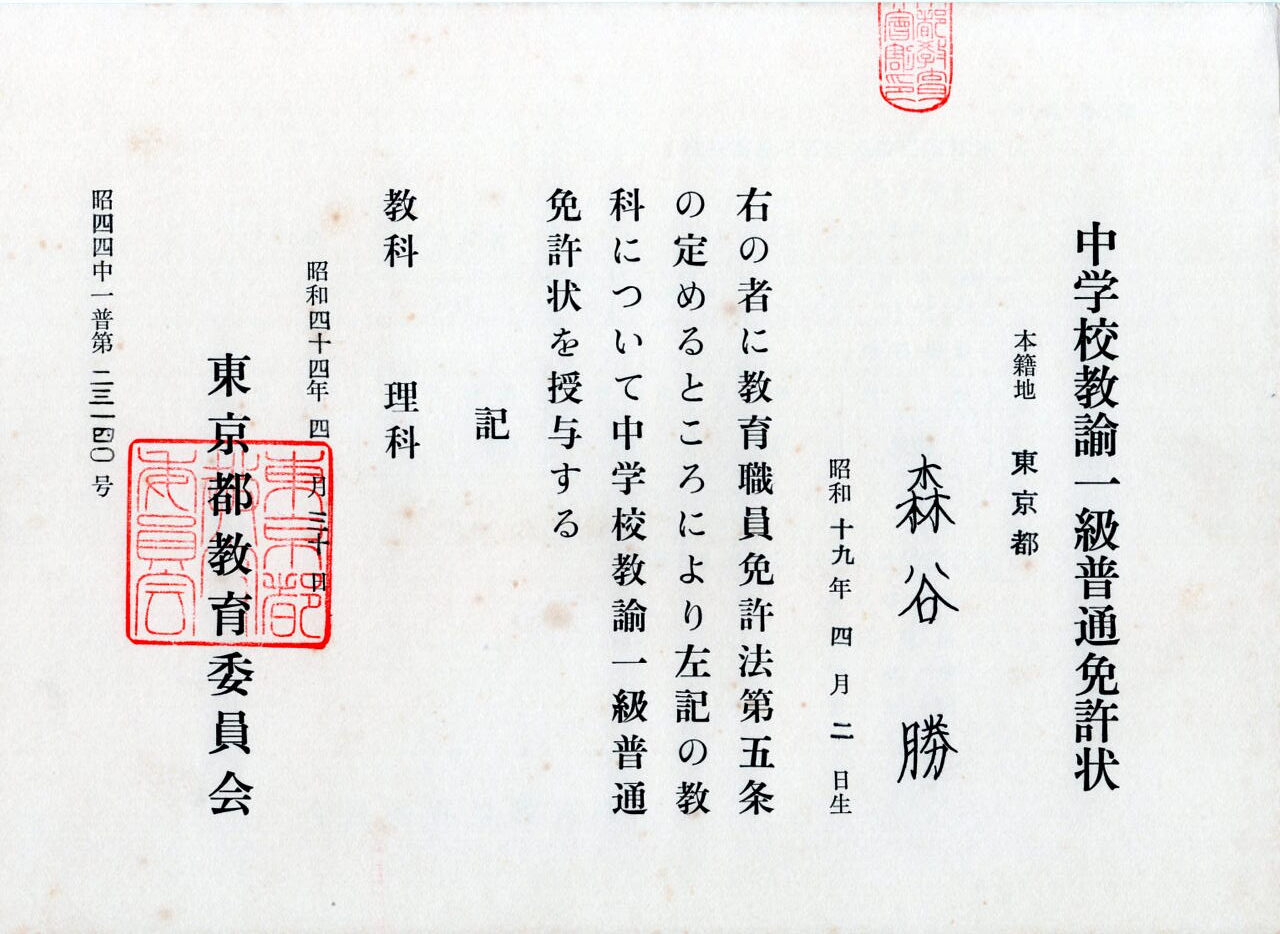 都教育
會割印
中学校教諭一級普通免許状
本籍地 東京都
森谷 勝
昭和十九年 四 月 二 日生
右の者に教育職員免許法第五条
の定めるところにより左記の教
科について中学校教諭一級普通
免許状を授与する
記
教科 理科
昭和四十四年 四 月 三十 日
東京都教育委員会
東京都
委員会
昭四四中一普第 二三一四〇 号